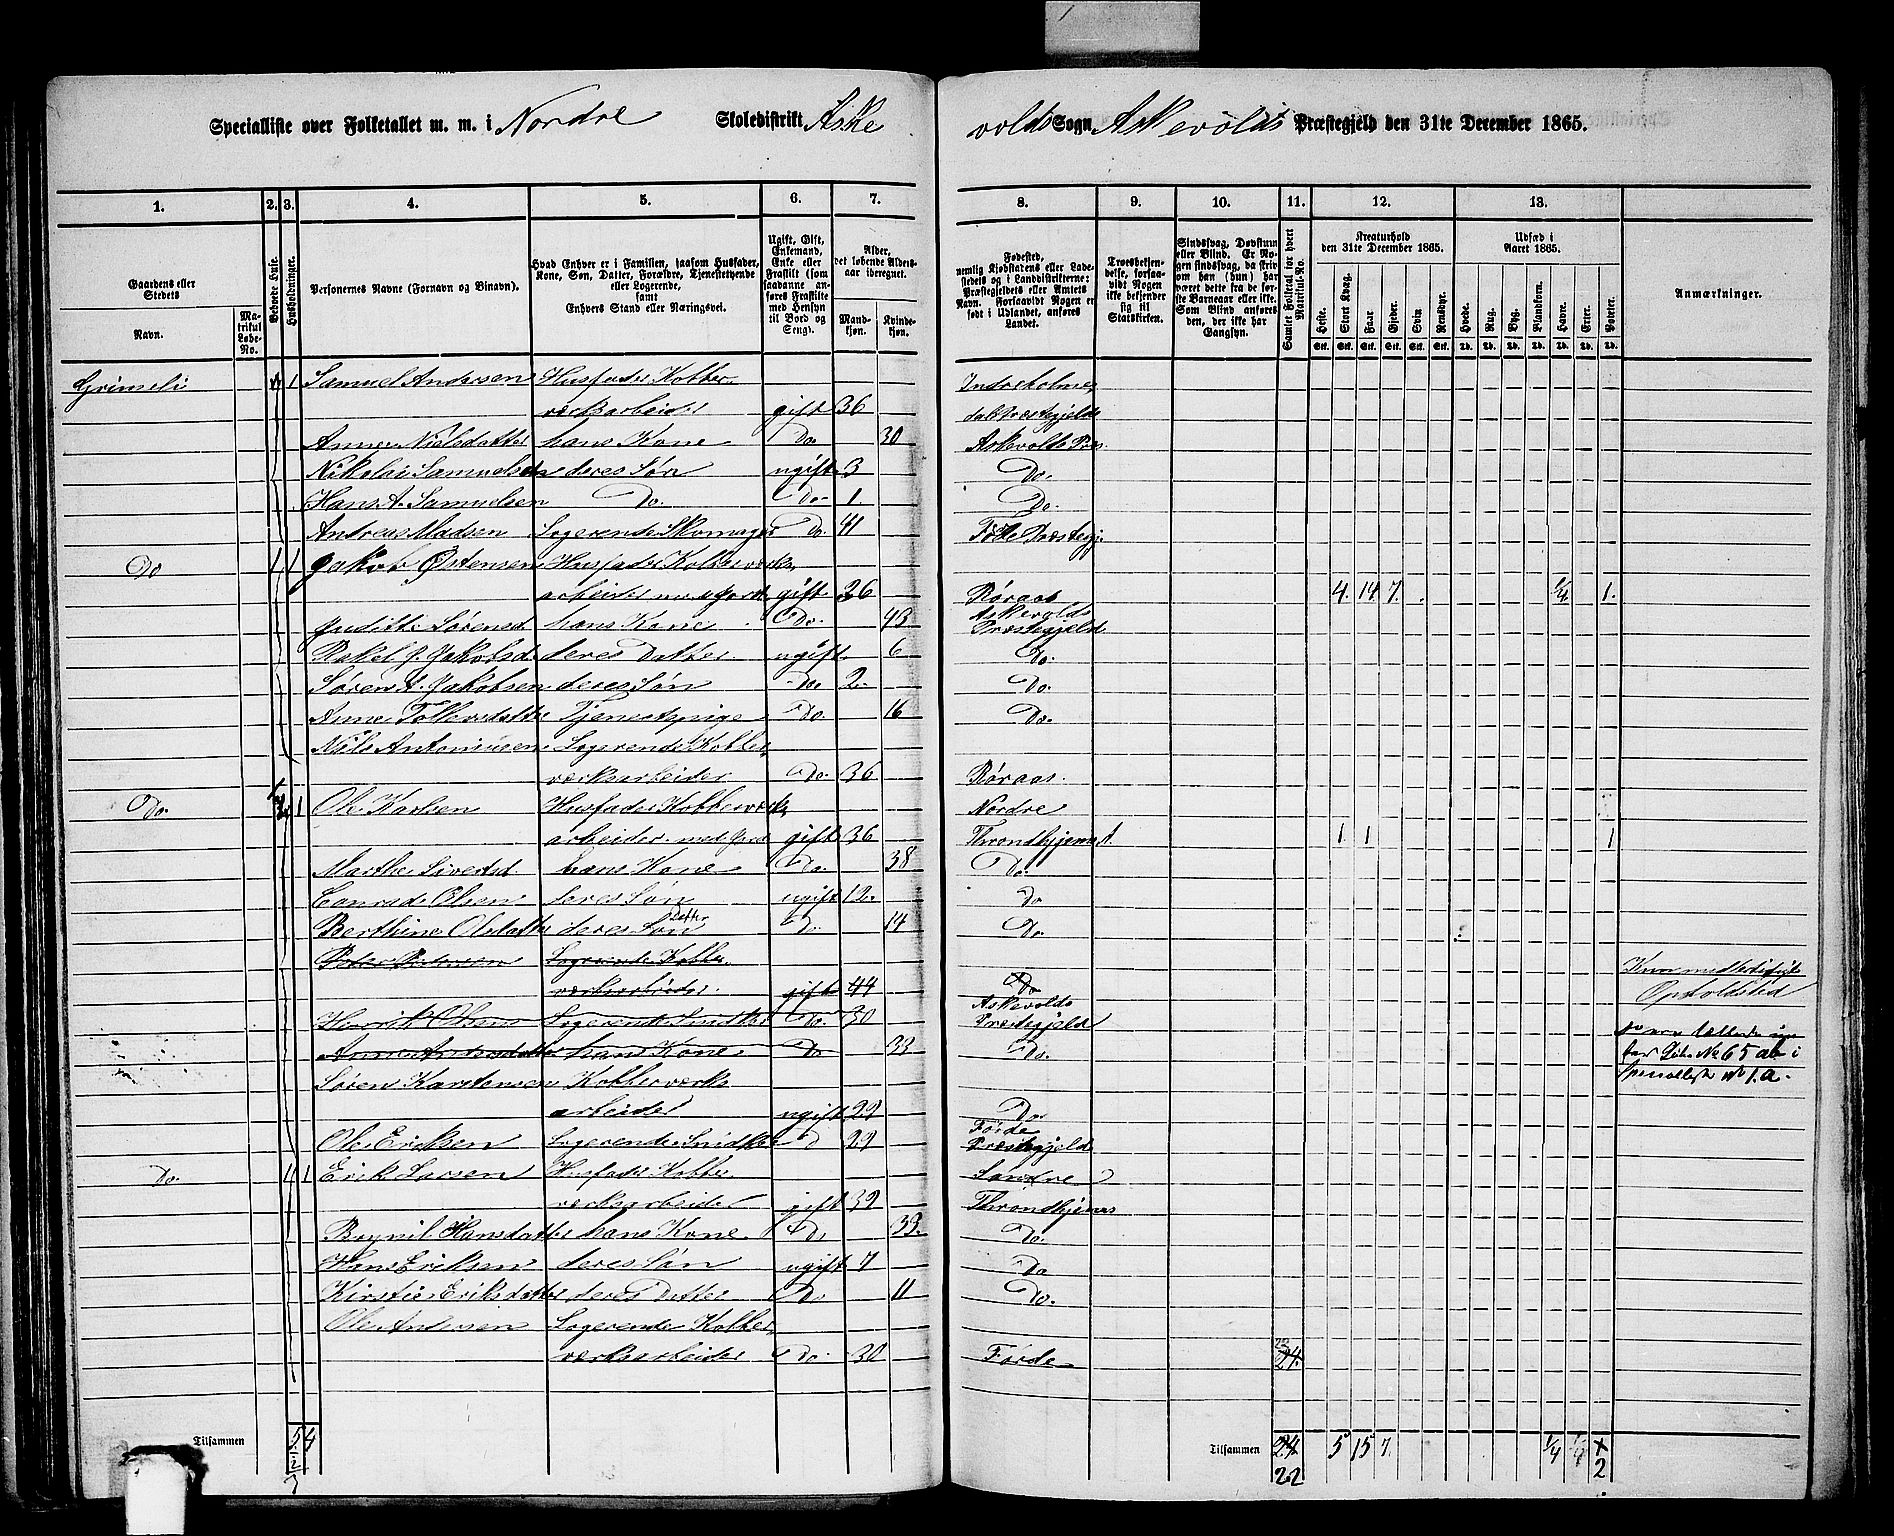 Specialliste over Folketallet m. m. i Nordre Skoledistrikt Aske
volds Sogn Askevolds Præstegjeld den 31te December 1865.
1. 2. 3. 4. 5. 6. 7.
8. 9. 10. 11. 12. 13.
Gaardens eller Stedets
Navn.
Matrikul Løbe-No.
Beboede Huse.
Husholdninger.
Personernes Navne (Fornavn og Binavn).
Hvad Enhver er i Familien, saasom Husfader, Kone, Søn, Datter, Forældre, Tjenestetyende eller Logerende, samt Enhvers Stand eller Næringsvei.
Ugift, Gift, Enkemand, Enke eller Fraskilt (som saadanne anføres Fraskilte med Hensyn til Bord og Seng).
Alder, det løbende Alders-aar iberegnet.
Mandkjøn. Kvindekjøn.
Fødested, nemlig Kjøbstadens eller Ladestedets og i Landdistrikterne: Præstegjeldets eller Amtets Navn. Forsaavidt Nogen er født i Udlandet, anføres Landet.
Troesbekjendelse, forsaavidt Nogen ikke bekjender sig til Statskirken.
Sindssvag, Døvstum eller Blind. Er Nogen sindssvag, da skrives om han (hun) har været dette fra de første Barneaar eller ikke. Som Blind anføres den, der ikke har Gangsyn.
Samlet Folketal for hvert Matrikul-No.
Kreaturhold den 31te December 1865.
Heste. Stort Kvæg. Faar. Gjeder. Svin. Rensdyr.
Udsæd i Aaret 1865.
Hvede. Rug. Byg. Blandkorn. Havre. Erter. Poteter.
Anmærkninger.
Grimeli 1 Samuel Andersen Husfader Kobber Indreholme
værksarbeider gift 36 dals Præstegjeld
Anne Nielsdatter hans Kone Do 30 Askevolds Præs.
Nikolai Samuelsen deres Søn ugift 3 Do.
Hans A. Samuelsen Do. Do 1. Do.
Andreas Madsen Logerende Skomager Do 41 Førde Præstegj.
Do 1 1 Jakob Østensen Husfader Kobberværks
arbeider med Jord gift 26 Røraas 4. 14. 7. 1/4 1.
Juditte Sørensd. hans Kone Do. 43 Askevolds Præstegjeld
Rakel J. Jakobsd. deres Datter ugift 6 Do.
Søren A. Jakobsen deres Søn Do. 2. Do.
Anne Tollevsdatter Tjenestepige Do. 16 Do.
Nils Antoniusen Logerende Kobber
værksarbeider Do. 36 Røraas.
Do. 1 Ole Karlsen Husfader Kobberværks Nordre
arbeider med Jord gift 36 Throndhjems A. 1 1 1
Marthe Sivertsd. hans Kone Do. 38 Do.
Conrad Olsen deres Søn ugift 12. do
Berthine Olsdatter deres Søn Datter Do 14 Do
Peter Pedersen Logerende Kobber
værksarbeider. gift 44 Do Kun midlertidigt Opholdsted
Henrik Olsen Logerende Snidker Do. 30 Askevolds Præstegjeld
Anne Andersdatter hans Kone Do 33 Do.
Løb. No 65 ab i
Specialliste No 1. a.
Søren Karstensen Kobberværks
arbeider ugift 29 Do.
Ole Eriksen Logerende Snidker D 29 Førde Præstegjeld
Do. 1 1 Erik Larsen Husfader Kobber Søndre
værksarbeider gift 39 Throndhjems
Hansdatter hans Kone. Do 33. Do.
Hans Eriksen deres Søn ugift 7 Do
Kirstie Eriksdatter deres Datter Do 11 Do.
Ole Andersen Logerende Kobber
værksarbeider Do. 30 Førde 23 24.
Tilsammen 5 4
Tilsammen 24 5 15 7. 1/4 2
22